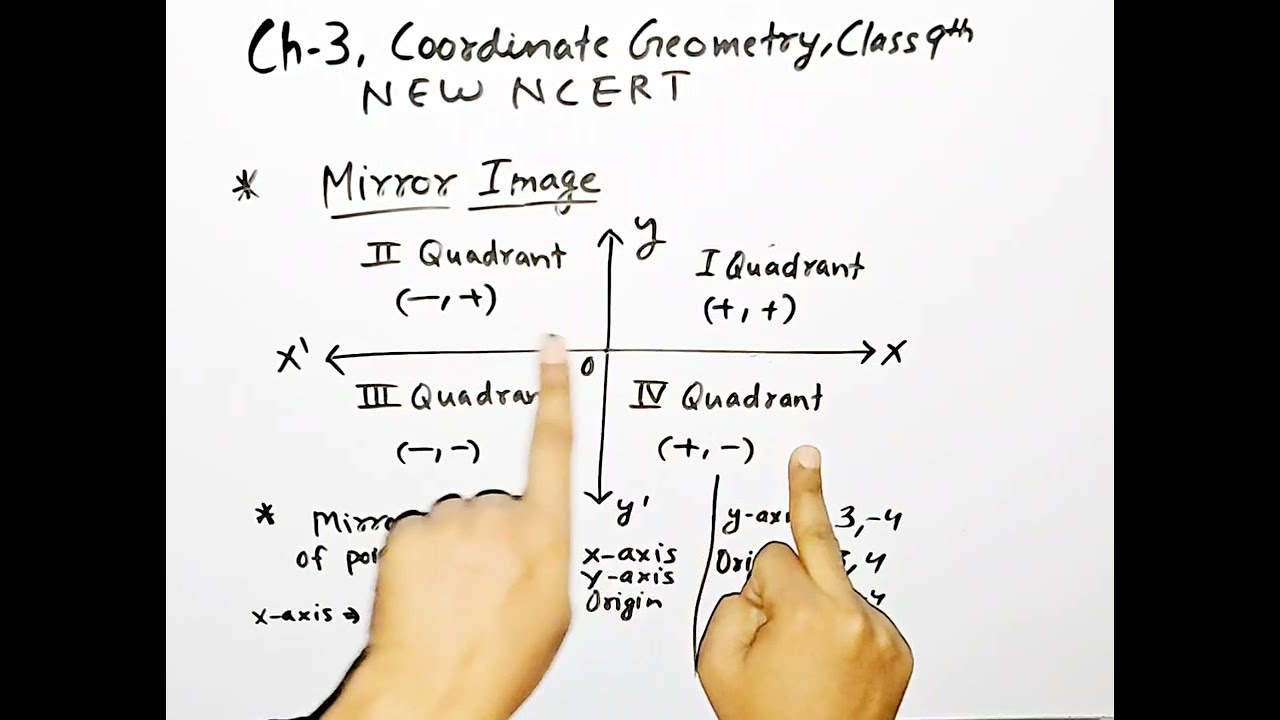 Ch-3, Coordinate Geometry, Class 9th
NEW NCERT
* Mirror Image
y
II Quadrant
(-, +)
I Quadrant
(+, +)
X'
O
X
III
(-, -)
IV Quadrant
(+, -)
y'
*
of
x-axis
y-axis
Origin
x-axis →
3, -4
4